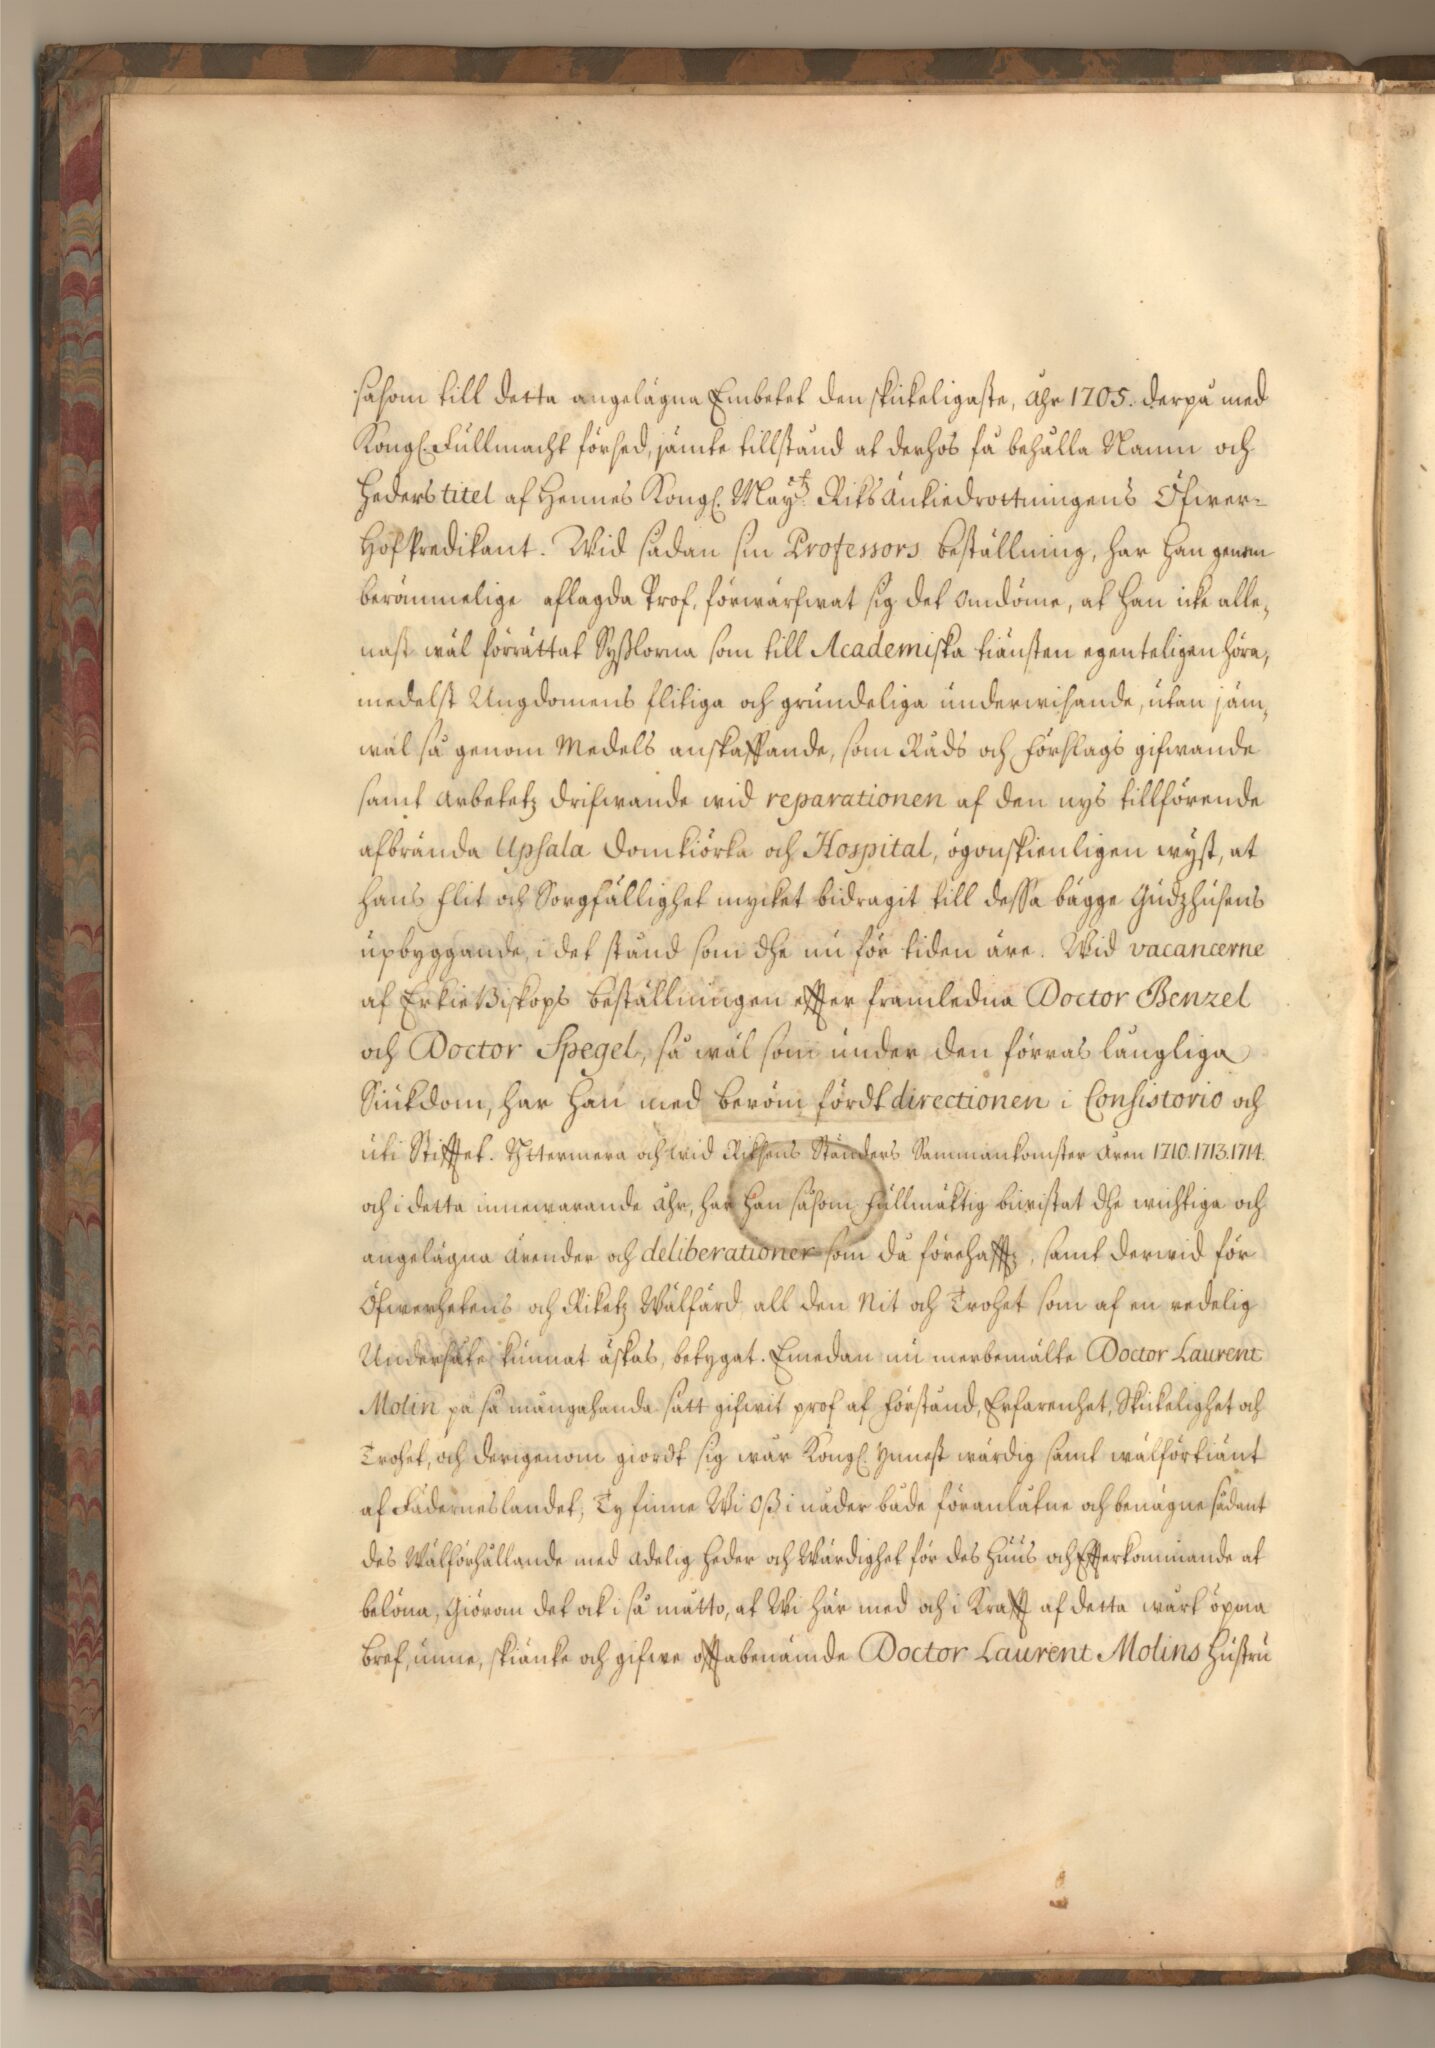 såsom till detta angelägna Embetet den skickeligaste, Åhr 1705. derpå med
Kongl. Fullmacht försed, jämte tillstånd at derhos få behålla Namn och
Heders titel af Hennes Kongl. May:tz Riks Änkiedrottningens Öfwer-
Hofpredikant. Wid sådan sin Professors beställning, har Han genom
berömmelige aflagda Prof, förwärfwat sig det omdöme, at Han icke alle,
nast wäl förrättat Sysslorna som till Academiska tiänsten egenteligen höra,
medelst Ungdomens flitiga och grundeliga underwisande, utan jäm,
wäl så genom Medels anskaffande, som Råds och Förslags gifwande
samt Arbetetz drifwande wid reparationen af den nys tillförende
afbrända Upsala Domkiörka och Hospital, ögonskienligen wyst, at
hans flit och Sorgfällighet mycket bidragit till dessa bägge Gudzhusens
upbyggande, i det stånd som dhe nu för tiden äre. Wid vacancerne
af ErkieBiskops beställningen effter framledna Doctor Benzel
och Doctor Spegel, så wäl som under den förras långliga
Siukdom, har Han med beröm fördt directionen i Consistorio och
uti Stifftet. Yttermera och wid Riksens Ständers Sammankomster Åren 1710. 1713. 1714.
och i detta innewarande Åhr, har han såsom Fullmäktig biwistat dhe wichtige och
angelägna Ärender och deliberationer som då förehafftz, samt derwid för
Öfwerhetens och Riketz Wälfärd all den Nit och Trohet som af en redelig
Undersåte kunnat äskas, betygat. Emedan nu merbemälte Doctor Laurent
Molin på så mångahanda sätt gifwit prof af Förstånd, Erfarenhet, Skickelighet och
Trohet, och derigenom giordt sig wår Kongl. Ynnest wärdig samt wälförtiänt
af Fäderneslandet, Ty finne Wi Oss i nåder både föranlåtne och benägne sådant
des Wälförhållande med Adelig Heder och Wärdighet för des Huus och Effterkommande at
belöna, Giörom det ock i så måtto, at Wi här med och i Krafft af detta wårt öpna
bref, unne, skiänke och gifwe offtabenämde Doctor Laurent Molins Hustru